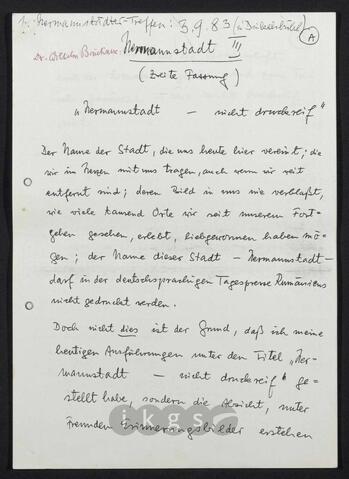 1. Hermannstädter-Treffen: 3.9.83 (in Dinkelsbühl)
A
Dr. Wilhelm Bruckner
Hermannstadt III
(Zweite Fassung)
"Hermannstadt — nicht druckreif"
Der Name der Stadt, die uns heute hier vereint; die
wir im Herzen mit uns tragen, auch wenn wir weit
entfernt sind; deren Bild in uns nie verblaßt,
wie viele tausend Orte wir seit unserem Fort-
gehen gesehen, erlebt, liebgewonnen haben mö-
gen; der Name dieser Stadt – Hermannstadt –
darf in der deutschsprachigen Tagespresse Rumäniens
nicht gedruckt werden.
Doch nicht dies ist der Grund, daß ich meine
heutigen Ausführungen unter den Titel „Her-
mannstadt — nicht druckreif" ge-
stellt habe, sondern die Absicht, unter
Fremden Erinnerungsbilder erstehen
ikgs